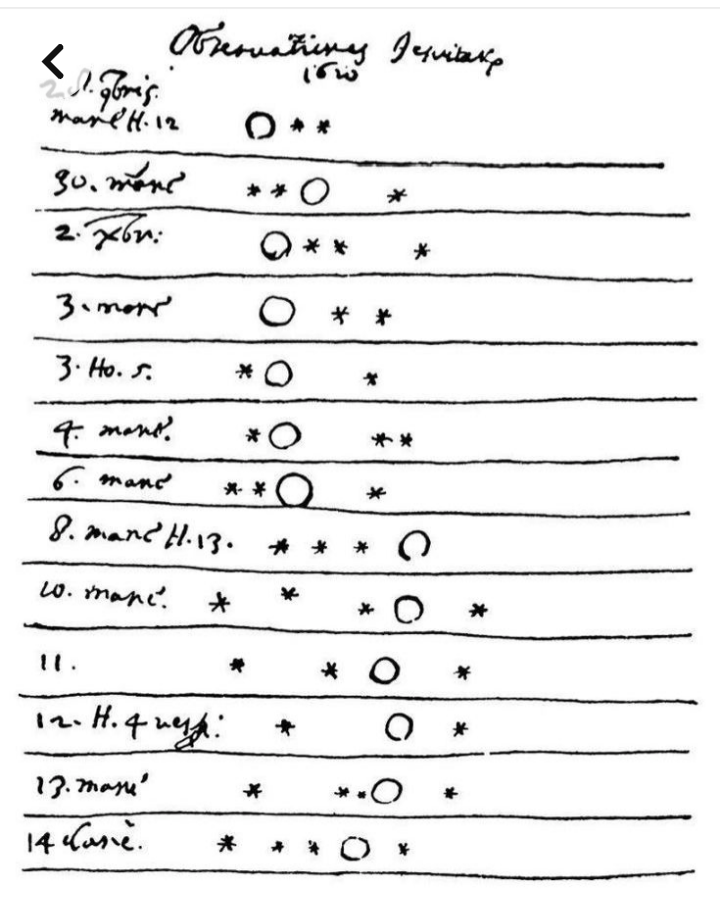 Observationes
1610
9bris.
mane H. 12
30. mane
2. xbr:
3. mane
3. Ho. 5.
4. mane.
6. mane
8. mane H. 13.
10. mane.
11.
12. H. 4 vesp:
13. mane
14 Mane.